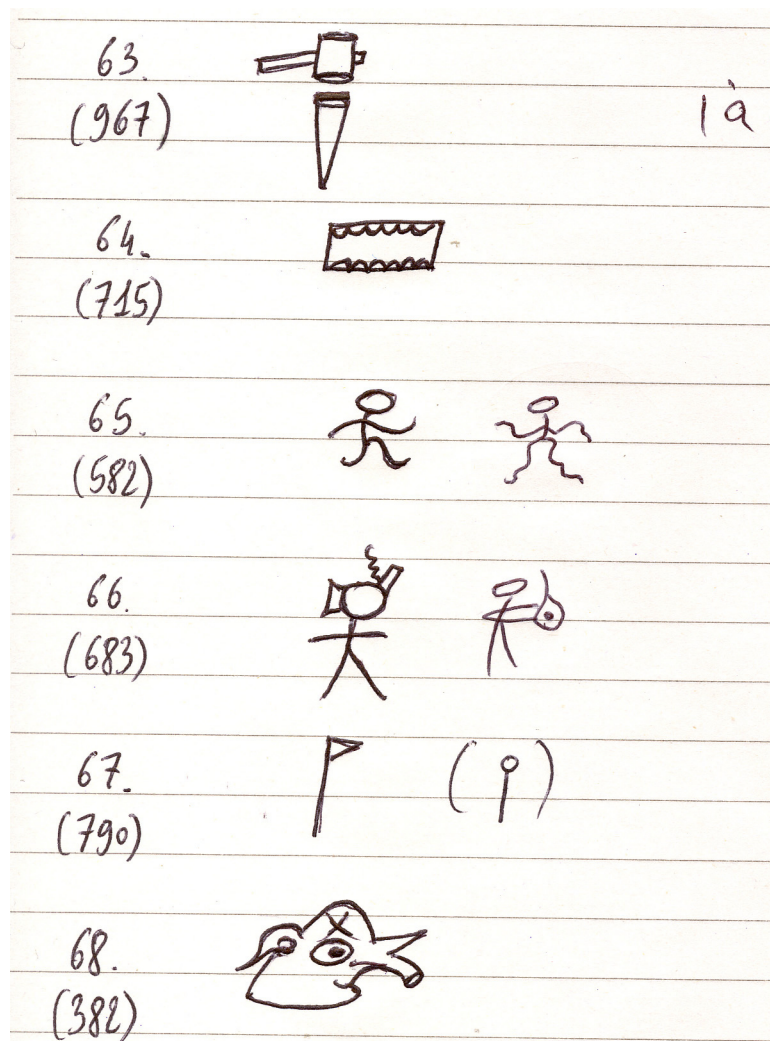 63.
(967)
64.
(715)
65.
(582)
66.
(683)
67.
(790)
68.
(382)